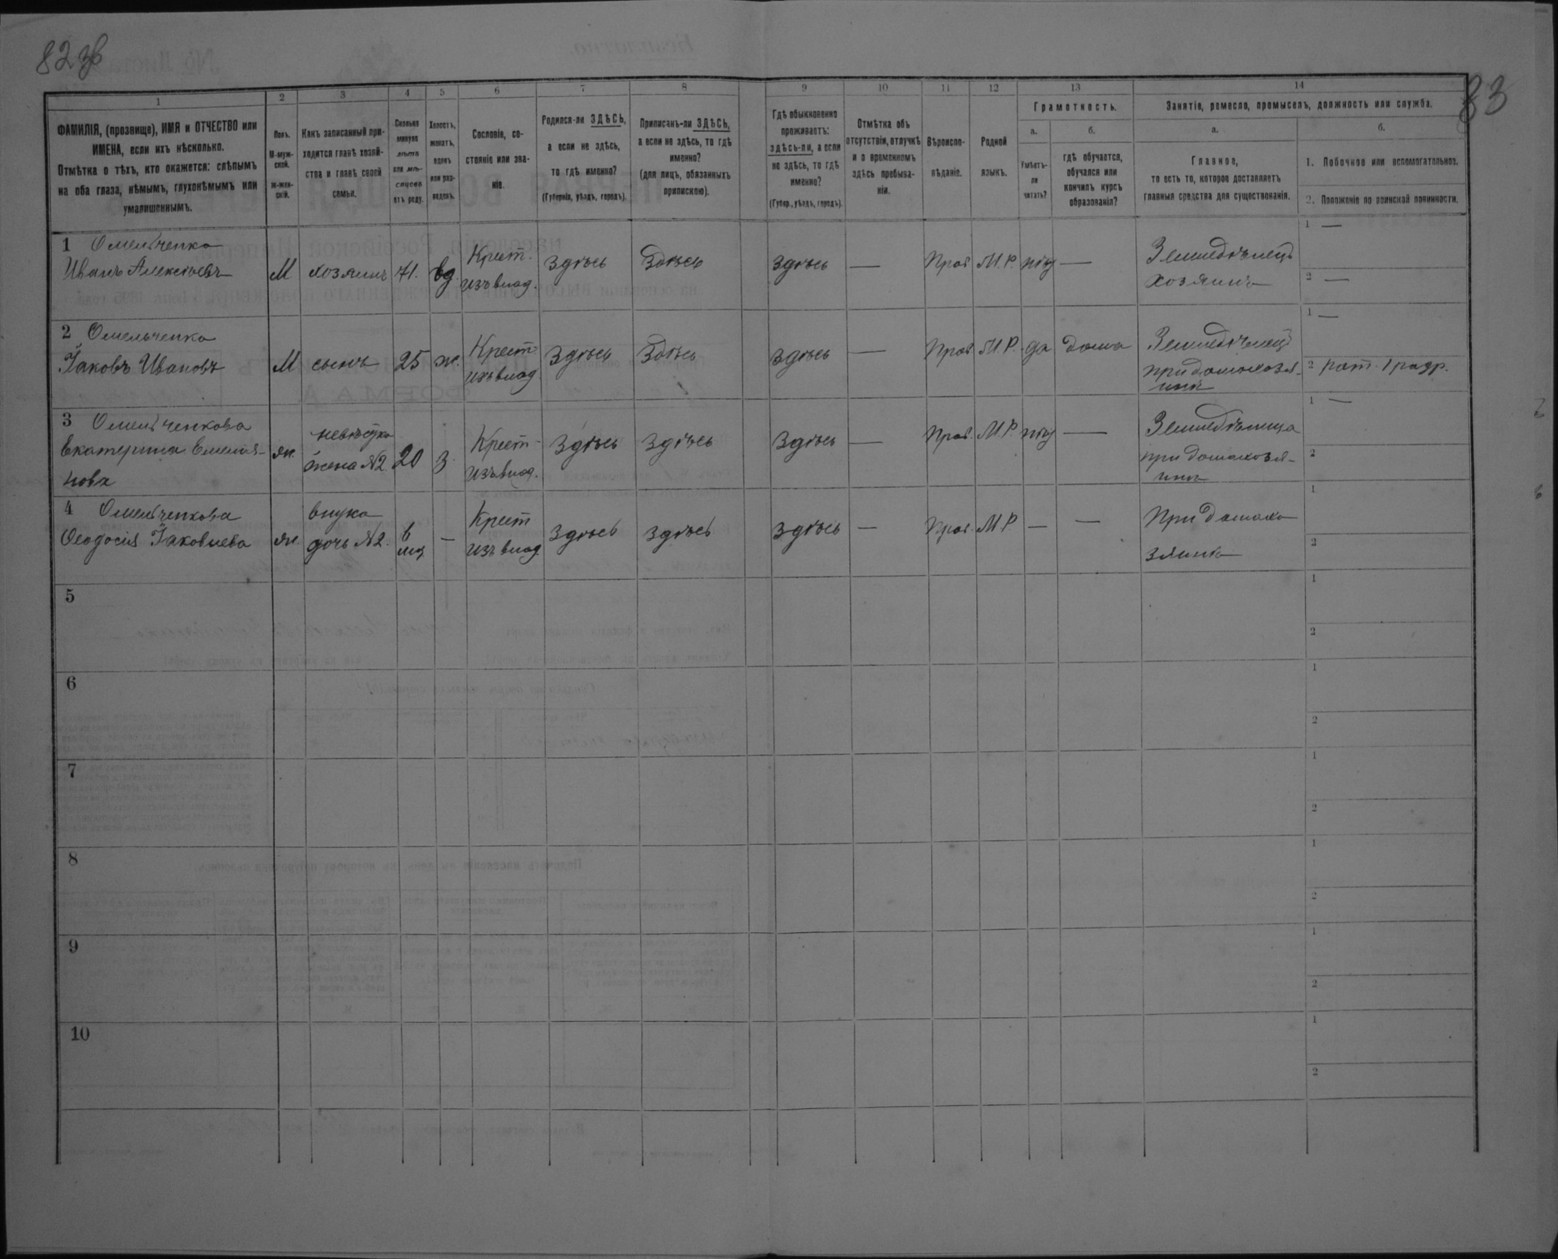 82 зв
83
1
2
3
4
5
6
7
8
9
10
11
12
13
14
ФАМИЛІЯ, (прозвище), ИМЯ и ОТЧЕСТВО или
ИМЕНА, если ихъ нѣсколько.
Отмѣтка о тѣхъ, кто окажется: слѣпымъ
на оба глаза, нѣмымъ, глухонѣмымъ или
умалишеннымъ.
Полъ.
М-муж-
ской.
Ж-жен-
скій.
Какъ записанный при-
ходится главѣ хозяй-
ства и главѣ своей
семьи.
Сколько
минуло
лѣтъ
или мѣ-
сяцевъ
отъ роду.
Холостъ,
женатъ,
вдовъ
или раз-
веденъ.
Сословіе, со-
стояніе или зва-
ніе.
Родился-ли ЗДѢСЬ,
а если не здѣсь,
то гдѣ именно?
(Губернія, уѣздъ, городъ).
Приписанъ-ли ЗДѢСЬ,
а если не здѣсь, то гдѣ
именно?
(для лицъ, обязанныхъ
припискою).
Гдѣ обыкновенно
проживаетъ:
здѣсь-ли, а если
не здѣсь, то гдѣ
именно?
(Губер., уѣздъ, городъ).
Отмѣтка объ
отсутствіи, отлучкѣ
и о временномъ
здѣсь пребыва-
ніи.
Вѣроиспо-
вѣданіе.
Родной
языкъ.
Грамотность.
а.
Умѣетъ-
ли
читать?
б.
гдѣ обучается,
обучался или
кончилъ курсъ
образованія?
Занятіе, ремесло, промыселъ, должность или служба.
а.
Главное,
то есть то, которое доставляетъ
главныя средства для существованія.
б.
1. Побочное или вспомогательное.
2. Положеніе по воинской повинности.
1 Омельченко
Иванъ Алексѣевъ
М
хозяинъ
71.
вд
Крест.
изъ влад.
здѣсь
здѣсь
здѣсь
—
Прав
М.Р.
нѣт
—
Земледѣлецъ
хозяинъ
1 —
2 —
2 Омельченко
Яковъ Ивановъ
М
сынъ
25
ж.
Крест
изъ влад
здѣсь
здѣсь
здѣсь
—
Прав
М.Р.
да
дома
Земледѣлец
при домохозя-
инѣ
1 —
2 рат. 1 разр.
3 Омельченкова
Екатерина Емелья-
нова
ж.
невѣстка
жена №2
20
з
Крест
изъ влад.
здѣсь
здѣсь
здѣсь
—
Прав
М.Р.
нѣт
—
Земледѣлица
при домохозя-
инѣ
1 —
2
4 Омельченкова
Ѳеодосія Яковлева
ж.
внука
дочь №2.
6
мц
—
Крест
изъ влад
здѣсь
здѣсь
здѣсь
—
Прав
М.Р
—
—
При домохо
зяинѣ
1
2
5
1
2
6
1
2
7
1
2
8
1
2
9
1
2
10
1
2